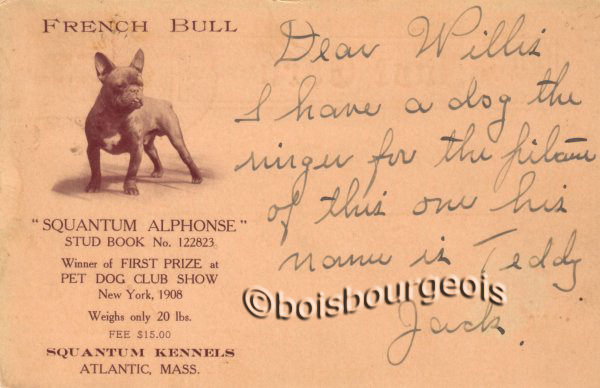 FRENCH BULL
"SQUANTUM ALPHONSE"
STUD BOOK No. 122823
Winner of FIRST PRIZE at
PET DOG CLUB SHOW
New York, 1908
Weighs only 20 lbs.
FEE $15.00
SQUANTUM KENNELS
ATLANTIC, MASS.
Dear Willis
I have a dog the
ringer for the
of this one his
name is Teddy
Jack.
©boisbourgeois